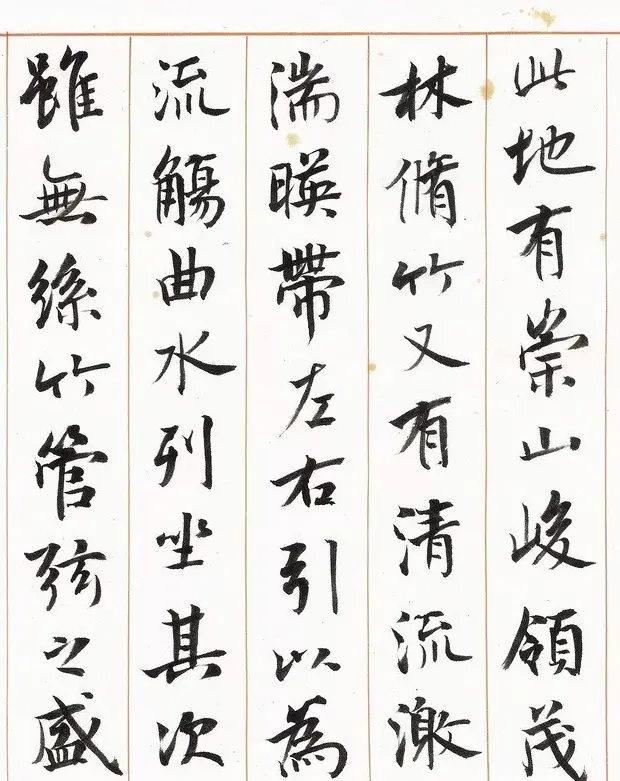 此地有崇山峻領茂
林脩竹又有清流激
湍暎帶左右引以為
流觴曲水列坐其次
雖無絲竹管弦之盛